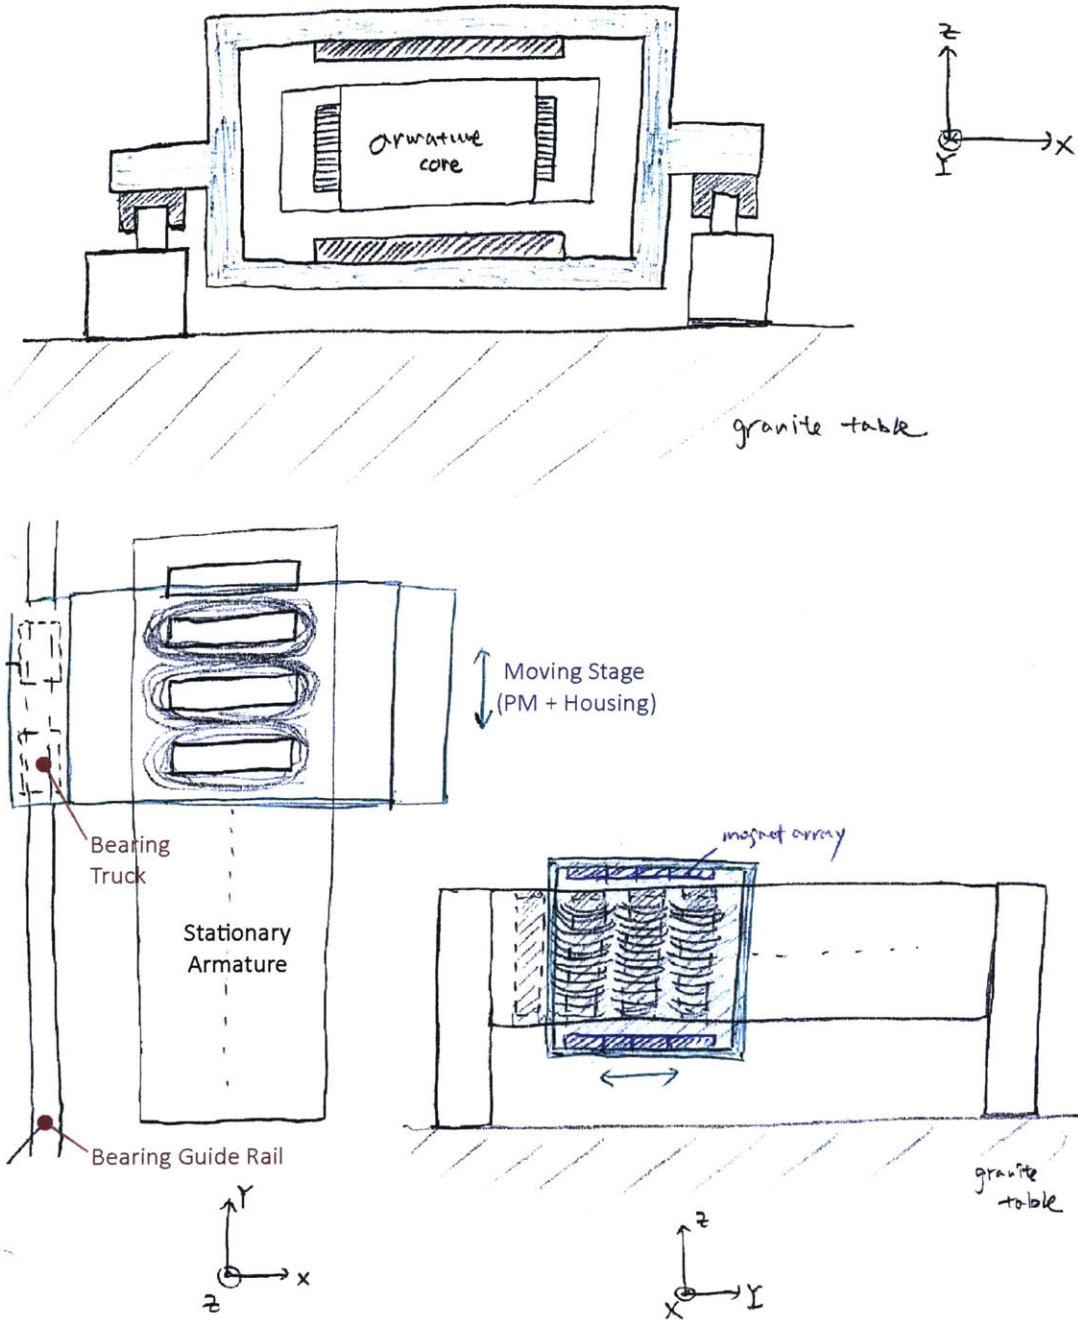 armature
core
Z
X
Y
granite table
Moving Stage
(PM + Housing)
Bearing
Truck
magnet array
Stationary
Armature
Bearing Guide Rail
granite
table
Y
X
Z
Z
X
Y